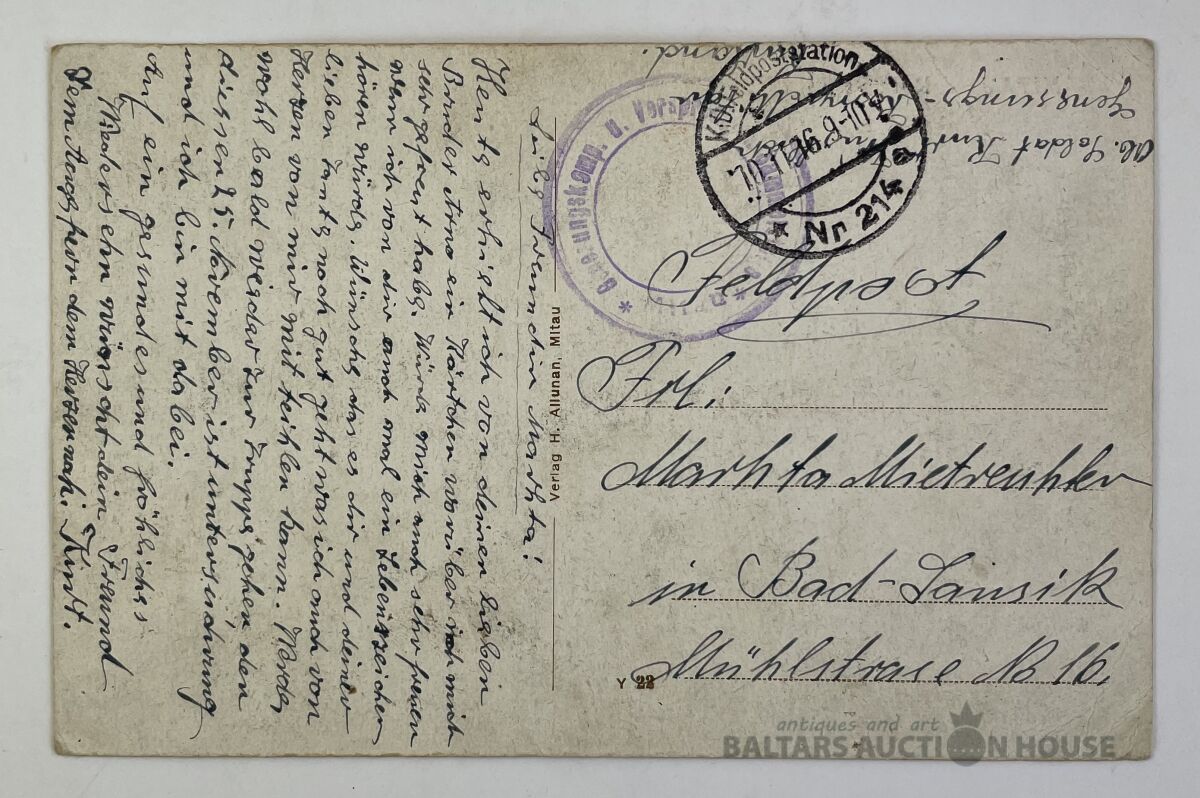 Liebe Freundin Martha!
Heute erhielt ich von deinen lieben
Bruder Arno ein Kärtchen worüber ich mich
sehr gefreut habe. Würde mich auch sehr freuen
wenn ich von dir auch mal ein Lebenszeichen
hören würde. Wünsche das es dir und deiner
lieben Tante noch gut geht was ich auch von
Herzen von mir mit teihlen kann. Werde
wohl bald wieder zur Truppe gehen den
diesen 25. November ist untersuchung
und ich bin mit dabei.
Auf ein gesundes und fröhliches
Wiedersehn wünscht dein Freund
Kurt.
Verlag H. Allunan, Mitau
Y 22
Abs. Soldat Kurt
Genesungs-
K.D. Feldpoststation
Nr 214 a
Genesungskomp. u.
Feldpost
Frl:
Martha
in Bad-Lausik
Mühlstrase No 16.
antiques and art
BALTARS AUCTION HOUSE